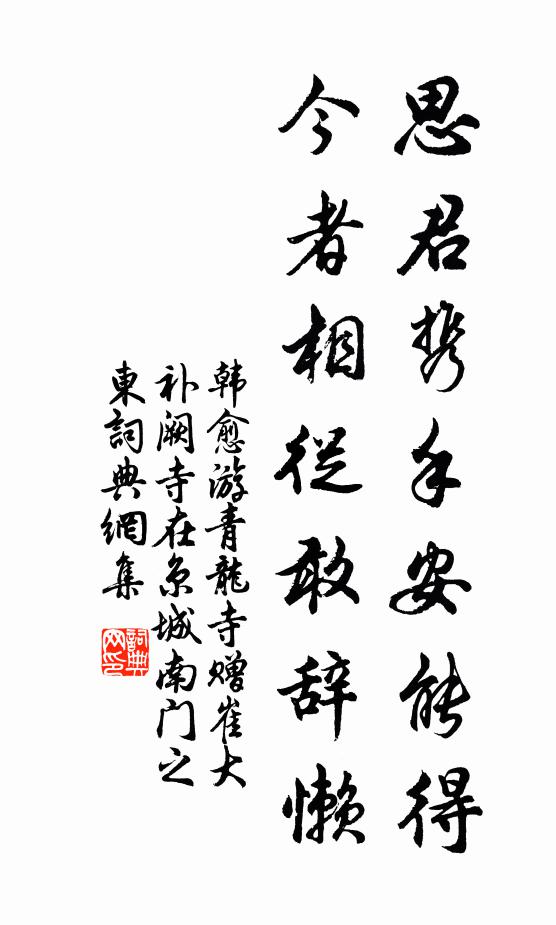 思君携手安能得
今者相從敢辞懒
韩愈游青龍寺赠崔大
补阙寺在京城南门之
東詞典網集
詞典
网印